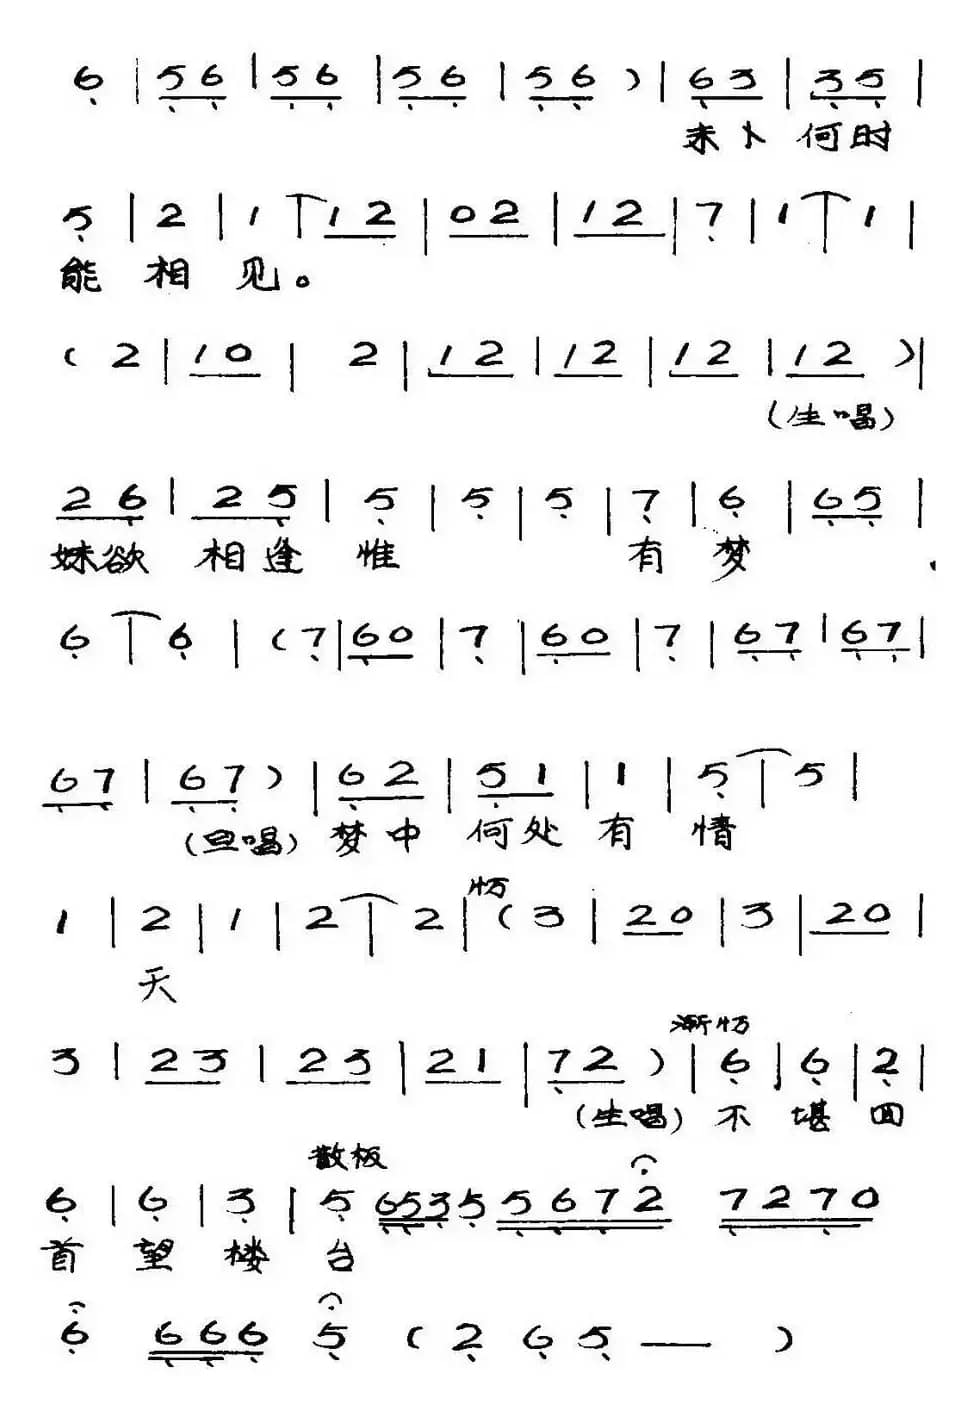 6 | 5 6 | 5 6 | 5 6 | 5 6 ) | 6 3 | 3 5 |
未卜 何时
5 | 2 | 1 | 1 2 | 0 2 | 1 2 | 7 | 1 | 1 |
能 相 见。
( 2 | 1 0 | 2 | 1 2 | 1 2 | 1 2 | 1 2 ) |
(生唱)
2 6 | 2 5 | 5 | 5 | 5 | 7 | 6 | 6 5 |
妹欲 相逢 惟 有 梦
6 | 6 | ( 7 | 6 0 | 7 | 6 0 | 7 | 6 7 | 6 7 |
6 7 | 6 7 ) | 6 2 | 5 1 | 1 | 5 | 5 |
(旦唱) 梦中 何处 有 情
1 | 2 | 1 | 2 | 2 | ( 3 | 2 0 | 3 | 2 0 |
天
渐
3 | 2 3 | 2 3 | 2 1 | 7 2 ) | 6 | 6 | 2 |
(生唱) 不 堪 回
散板
6 | 6 | 3 | 5 6 5 3 5 5 6 7 2 7 2 7 0
首 望 楼 台
6 6 6 6 5 ( 2 6 5 — )